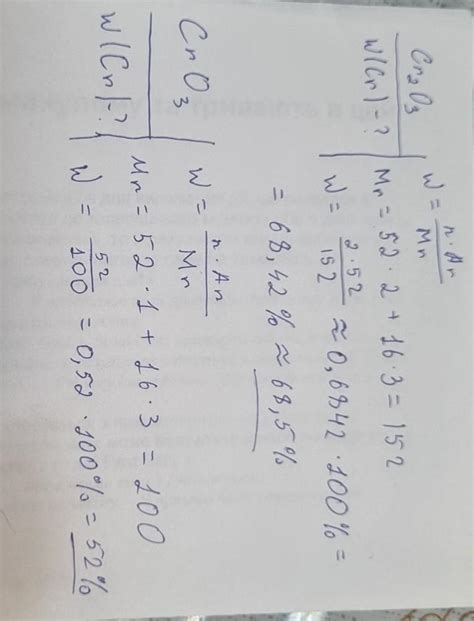 Cr₂O₃
W(Cr)-?
W = n·Ar/Mr
Mr = 52·2+16·3=152
W = 2·52/152 ≈ 0,6842·100% =
= 68,42% ≈ 68,5%
CrO₃
W(Cr)-?
W = n·Ar/Mr
Mr = 52·1+16·3=100
W = 52/100 = 0,52·100% = 52%